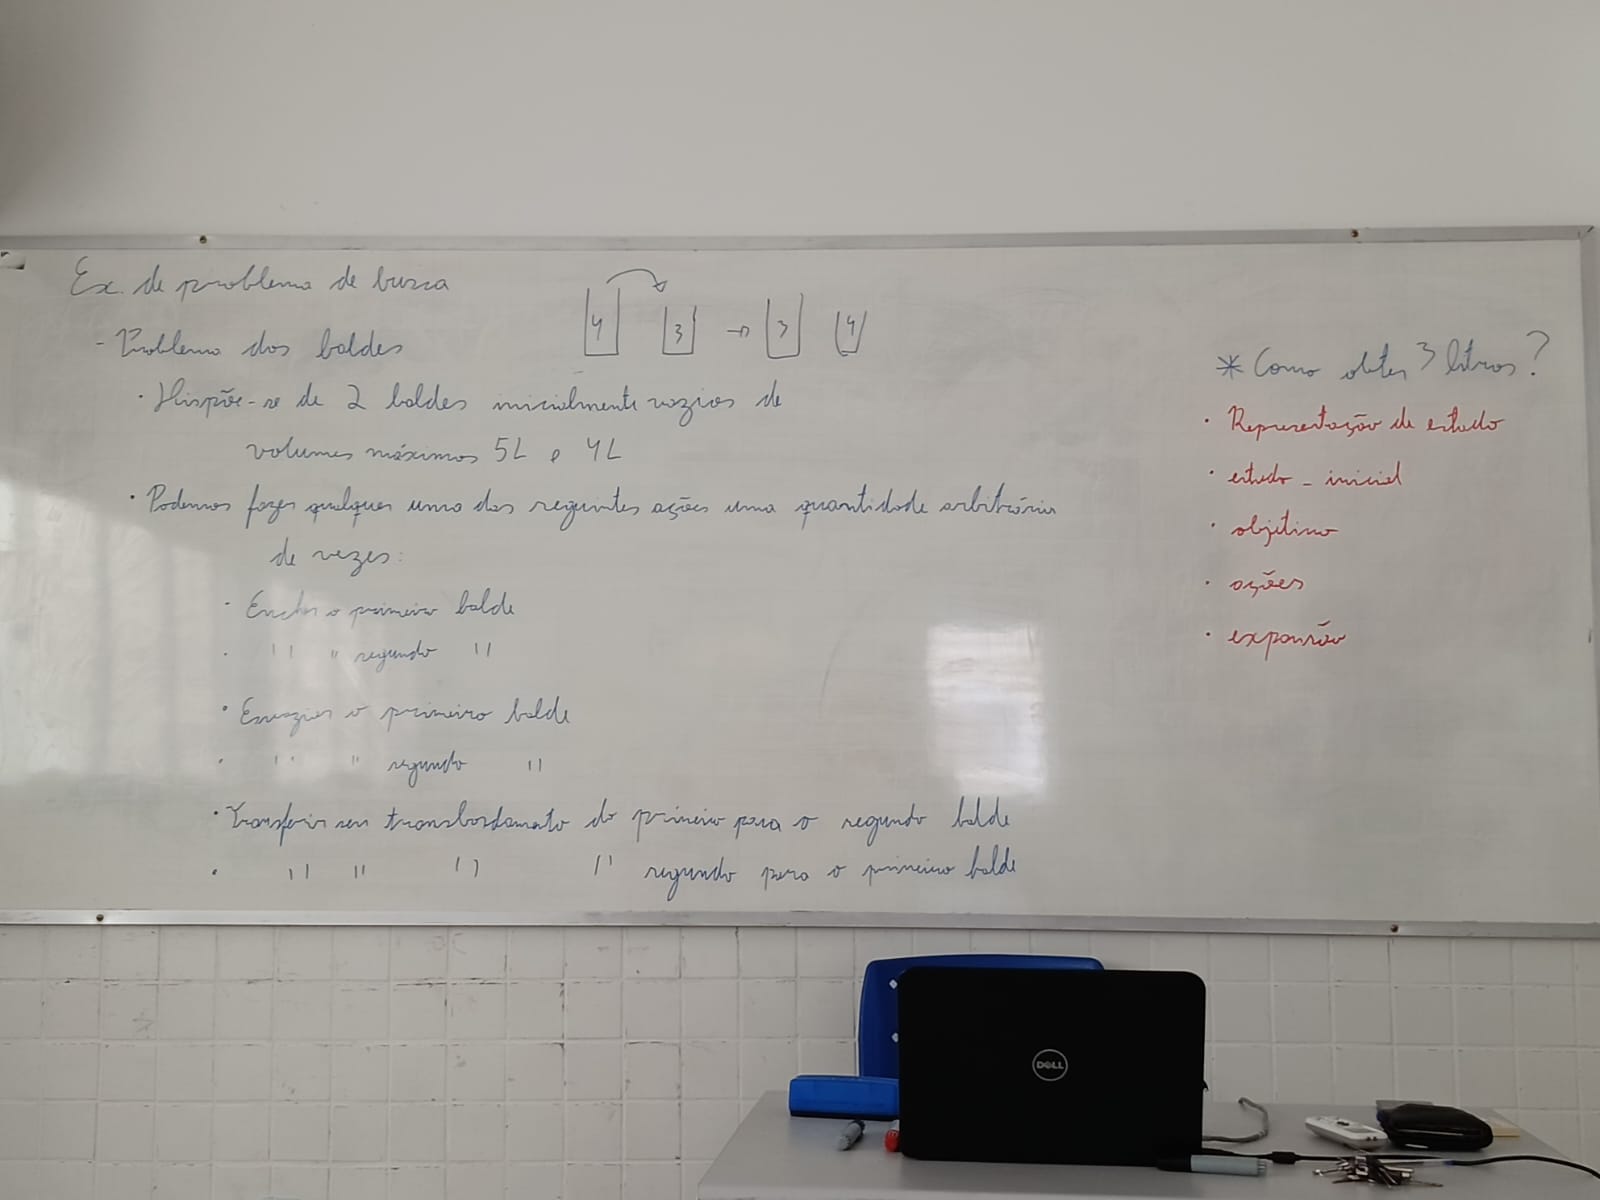 Ex. de problema de busca
4 3 → 3 4
- Problema dos baldes
· Dispõe-se de 2 baldes inicialmente vazios de
volumes máximos 5L e 4L
· Podemos fazer qualquer uma das seguintes ações uma quantidade arbitrária
de vezes:
· Encher o primeiro balde
· " " segundo "
· Esvaziar o primeiro balde
· " " segundo "
· Transferir sem transbordamento do primeiro para o segundo balde
· " " " " segundo para o primeiro balde
* Como obter 3 litros?
· Representação de estado
· estado_inicial
· objetivo
· ações
· expansão
DELL